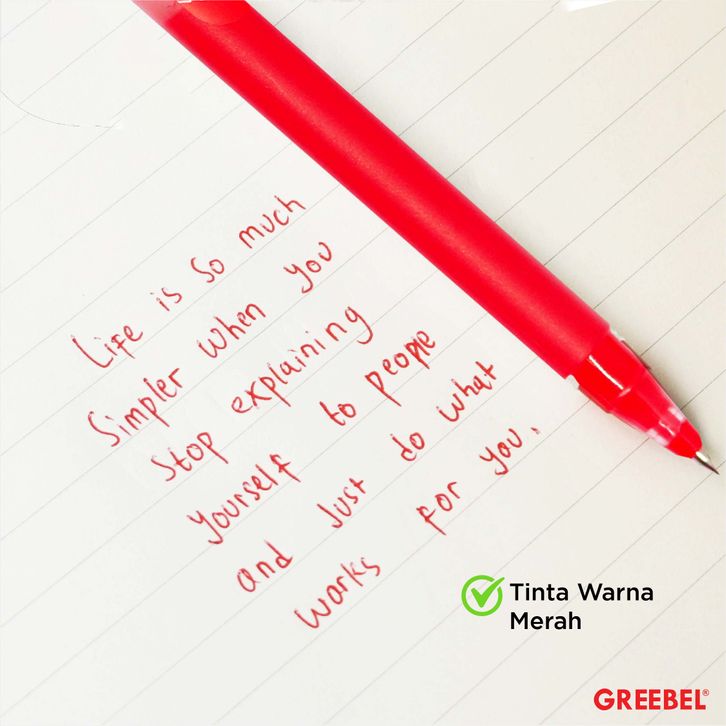 Life is so much
Simpler when you
Stop explaining
Yourself to people
and Just do what
works for you.
Tinta Warna
Merah
GREEBEL®